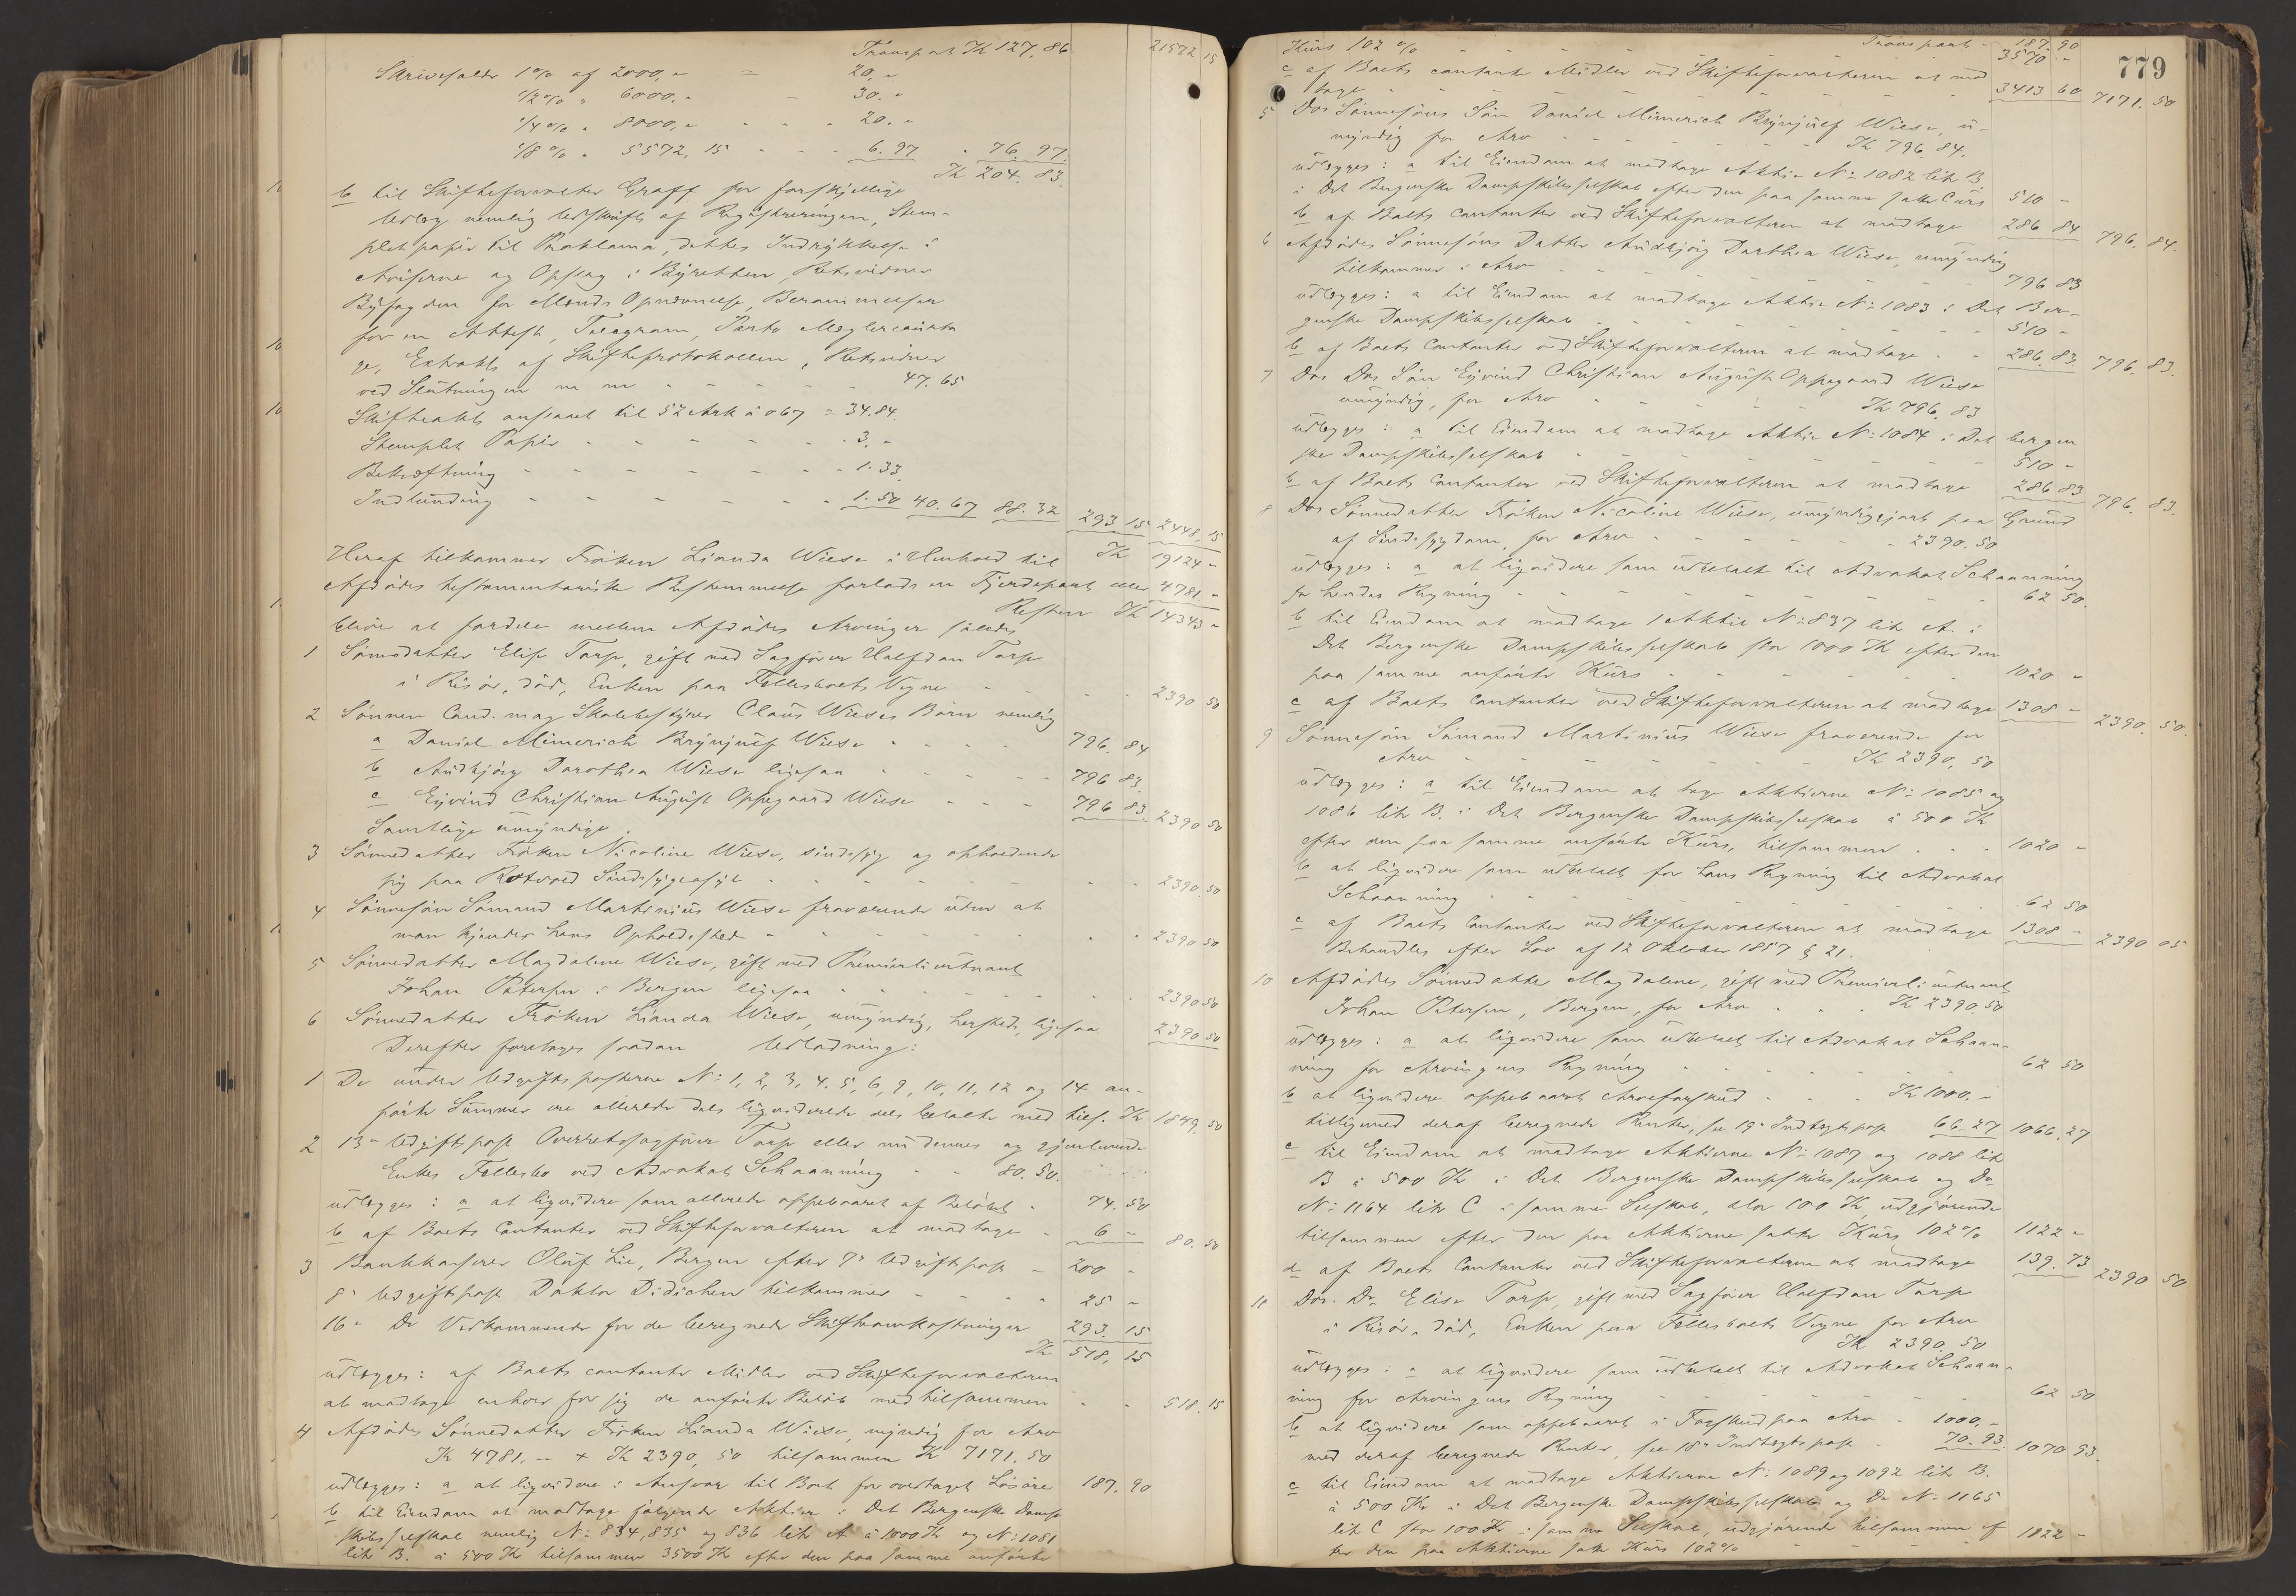 Transport Kr 127.86 21572 15
Skiveskalder 1% af 2000,„ = 20.„
1/2% „ 6000.„ - 30.„
1/4% „ 8000,„ - - - 20.„
1/8% „ 5572,15 - - - 6.97 „ 76.97.
Kr 204.83.
b til Skifteforvalter Graff for forskjellige
Udlæg nemlig Udskrift af Registreringen, Stem-
plet papir til Proklama, dettes Indrykkelse i
Aviserne og Opslag i Byretten, Retsvidner
Byfogden for Mænds Opnævnelse, Berammelser
for en Attest, Telegram, Porto Meglercourta
ge, Extrakt af Skifteprotokollen, Retsvidner
ved Slutningen m m - - - - - 47.65
Skifteakt anslaaet til 52 Ark à 067 = 34.84.
Stemplet Papir - - - - - - 3,„
Bekræftning - - - - - - - 1.33
Indbinding - - - - - - - 1.50 40.67 88.32 293 15 2448,15
Heraf tilkommer Frøken Lianda Wiese i Henhold til Kr 19124 „
Afdødes testamentariske Bestemmelse forlods en Fjerdepart eller 4781.„
Resten Kr 14343 „
blive at fordele mellem Afdødes Arvinger saaledes
1 Sønnedatter Elise Torp, gift med Sagfører Halfdan Torp
i Risør, død, Enken paa Fællesboets Vegne - - - - 2390 50
2 Sønnen Cand. mag Skolebestyrer Claus Wieses Børn nemlig
a Daniel Mimerich Brynjulf Wiese - - - 796.84
b Audbjørg Dorothea Wiese ligesaa - - - 796 83.
c Eyvind Christian August Oppegaard Wiese - - - 796 83 2390 50
Samtlige umyndige.
3 Sønnedatter Frøken Nicoline Wiese, sindssyg og opholdende
sig paa Rotvold Sindssygeasyl - - - - - - 2390.50
4 Sønnesøn Sømand Martinius Wiese fraværende uden at
man kjender hans Opholdssted - - - - - - 2390 50
5 Sønnedatter Magdalene Wiese, gift med Premierlieutnant
Johan Petersen i Bergen ligesaa - - - - - 2390 50
6 Sønnedatter Frøken Lianda Wiese, umyndig, hersteds, ligesaa 2390 50
Derefter foretages saadan Udlodning:
1 De under Udgiftsposterne No: 1, 2, 3, 4. 5, 6, 9, 10, 11, 12 og 14 an-
førte Summer ere allerede dels liqviderede dels betalte med tils. Kr 1849.50
2 13de Udgiftspost Overretssagfører Torp eller nu dennes og gjenlevende
Enkes Fællesbo ved Advokat Schaanning - - 80.50.
udlægges: a at liqvidere som allerede oppebaaret af Beløbet - 74.50
b af Boets Contanter ved Skifteforvalteren at modtage - 6 - 80.50
3 Bankkasserer Oluf Lie, Bergen efter 7de Udgiftspost - 200 -
8de Udgiftspost Doktor Didichen tilkommer - - - - 25 -
16de Do Vedkommende for de beregnede Skifteomkostninger 293.15
Kr 518,15
udlægges: af Boets contante Midler ved Skifteforvalteren
at modtage enhver for sig de anførte Beløb med tilsammen - - 518.15
4 Afdødes Sønnedatter Frøken Lianda Wiese, myndig for Arv
Kr 4781,- + Kr 2390,50 tilsammen Kr 7171.50
udlægges: a at liqvidere i Ansvar til Boet for overtaget Løsøre 187.90
b til Eiendom at modtage følgende Aktier i Det Bergenske Damp
skibsselskab nemlig No: 834, 835 og 836 litr A à 1000 Kr og No: 1081
litr B. à 500 Kr tilsammen 3500 Kr efter den paa samme anførte
779
Transport - 187.90
Kurs 102% - - - - - - 3570 -
c af Boets contante Midler ved Skifteforvalteren at mod
tage - - - - - - - 3413 60 7171.50
5 Dos Sønnesøns Søn Daniel Mimerich Brynjulf Wiese, u-
myndig for Arv - - - - - Kr 796.84.
udlægges: a til Eiendom at modtage Aktie No: 1082 litr B
i Det Bergenske Dampskibsselskab efter den paa samme satte Curs 510 -
b af Boets Contanter ved Skifteforvalteren at modtage 286 84 796.84.
6 Afdødes Sønnesøns Datter Audbjørg Dorthea Wiese, umyndig
tilkommer i Arv - - - - - - - 796 83
udlægges: a til Eiendom at modtage Aktie No: 1083 i Det Ber-
genske Dampskibsselskab - - - - - - - 510 -
b af Boets Contanter ved Skifteforvalteren at modtage - - 286.83. 796.83.
7 Dos Dos Søn Eyvind Christian August Oppegaard Wiese
umyndig, for Arv - - - - - Kr 796.83
udlægges: a til Eiendom at modtage Aktie No: 1084 i Det bergen
ske Dampskibsselskab - - - - - - - 510 -
b af Boets Contanter ved Skifteforvalteren at modtage 286 83 796.83.
8 Dos Sønnedatter Frøken Nicoline Wiese, umyndiggjort paa Grund
af Sindssygdom, for Arv - - - - - - 2390.50
udlægges: a at liqvidere som udbetalt til Advokat Schaanning
for hendes Regning - - - - - - - 62 50.
b til Eiendom at modtage 1 Aktie No: 837 litr A. i
Det Bergenske Dampskibsselskab stor 1000 Kr efter den
paa samme anførte Kurs - - - - - - 1020 -
c af Boets Contanter ved Skifteforvalteren at modtage 1308 - 2390.50.
9 Sønnesøn Sømand Martinius Wiese fraværende for
Arv - - - - - - Kr 2390,50
udlægges: a til Eiendom at tage Aktierne No: 1085 og
1086 litr B. i Det Bergenske Dampskibsselskab à 500 Kr
efter den paa samme anførte Kurs, tilsammen - - - 1020 -
b at liqvidere som udbetalt for hans Regning til Advokat
Schaanning - - - - - - - 62 50
c af Boets Contanter ved Skifteforvalteren at modtage 1308 - 2390 05
Behandles efter Lov af 12 Oktober 1857 § 21.
10 Afdødes Sønnedatter Magdalene, gift med Premierlieutnant
Johan Petersen, Bergen, for Arv - - - Kr 2390.50
udlægges: a at liqvidere som udbetalt til Advokat Schaan-
ning for Arvingens Regning - - - - - 62 50
b at liqvidere oppebaaret Arveforskud - - - Kr 1000.-
tilligemed deraf beregnede Renter, see 19de Indtægtspost 66.27 1066.27
c til Eiendom at modtage Aktierne No: 1087 og 1088 litr
B à 500 Kr i Det Bergenske Dampskibsselskab og Do
No: 1164 litr C i samme Selskab, stor 100 Kr, udgjørende
tilsammen efter den paa Aktierne satte Kurs 102% 1122 -
d af Boets Contanter ved Skifteforvalteren at modtage 139.73 2390 50
11 Dos. Do Elise Torp, gift med Sagfører Halfdan Torp
i Risør, død, Enken paa Fællesboets Vegne for Arv
Kr 2390.50
udlægges: a at liqvidere som udbetalt til Advokat Schaan-
ning for Arvingens Regning - - - - - - 62 50
b at liqvidere som oppebaaret i Forskud paa Arv - 1000.-
med deraf beregnede Renter, see 18de Indtægtspost - 70.93. 1070 93.
c til Eiendom at modtage Aktierne No: 1089 og 1092 litr B.
à 500 Kr i Det Bergenske Dampskibsselskab og Do No: 1165
litr C stor 100 Kr i samme Selskab, udgjørende tilsammen ef
ter den paa Aktierne satte Kurs 102% - - - - 1122 -